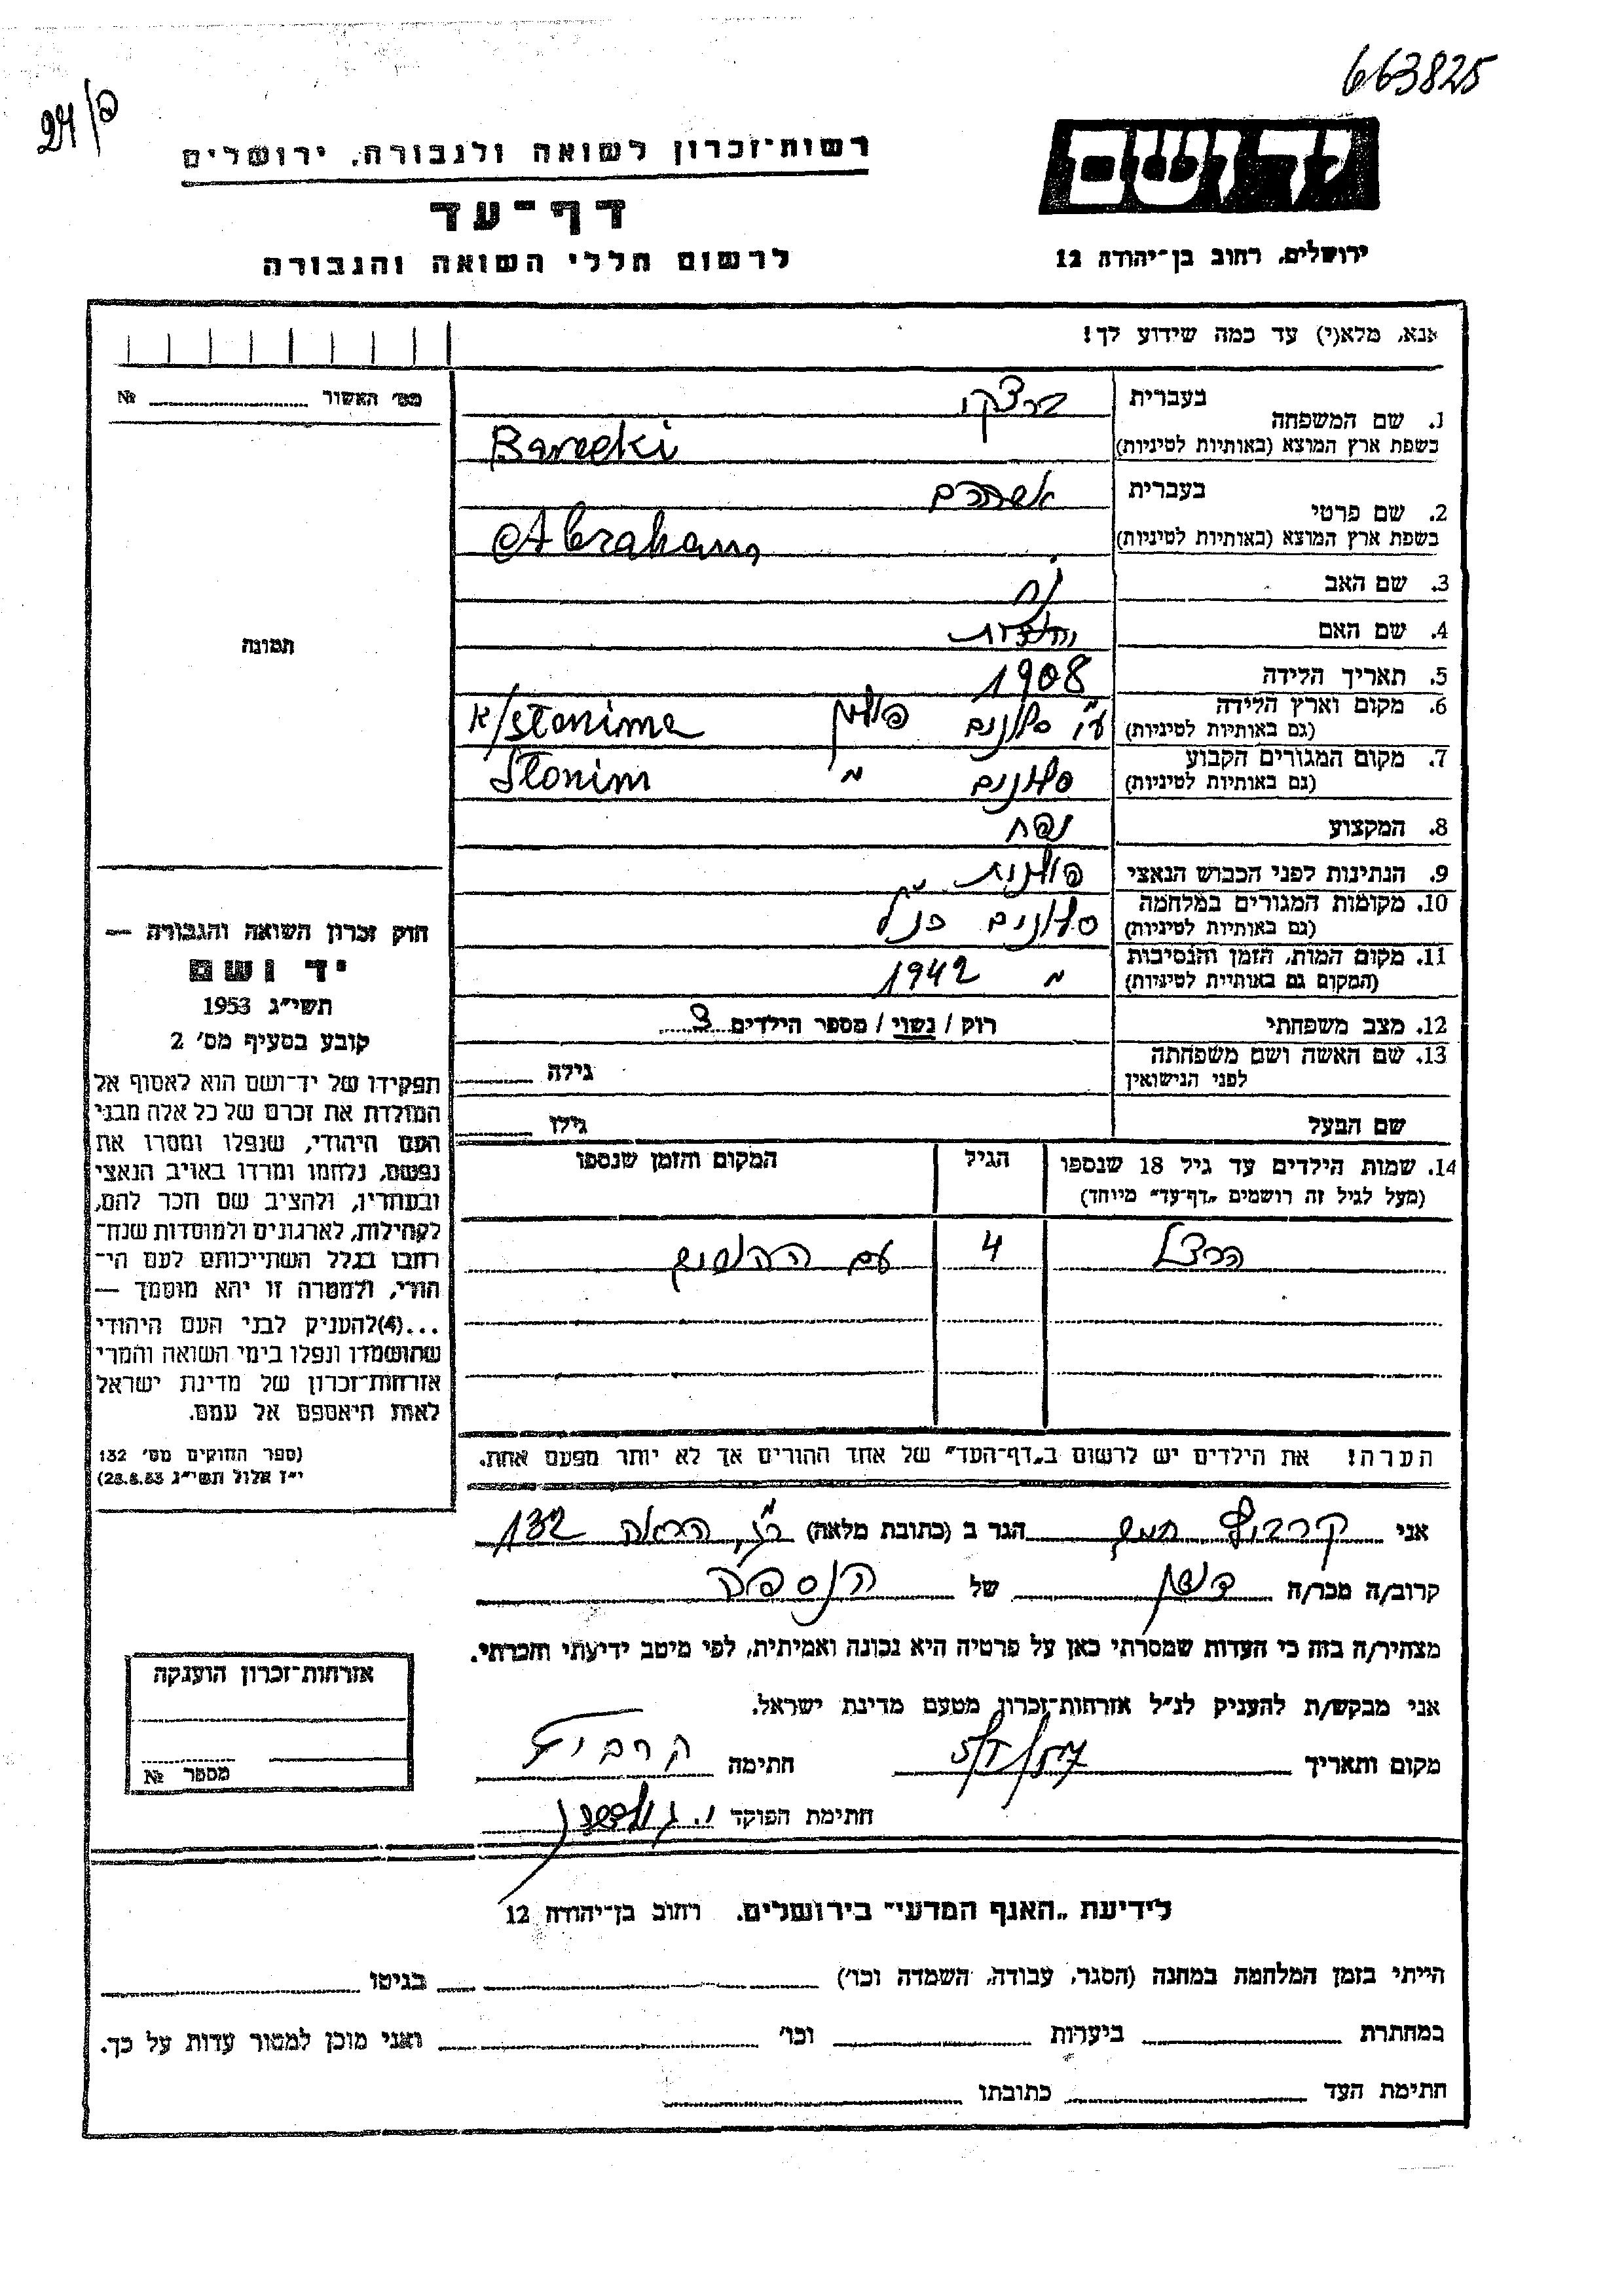 663825
24/פ
יד ושם
רשות־זכרון לשואה ולגבורה, ירושלים
דף־עד
לרשום חללי השואה והגבורה
ירושלים, רחוב בן־יהודה 12
אנא, מלא(י) עד כמה שידוע לך!
מס׳ האשור № 
1. שם המשפחה בעברית ברצקי
בשפת ארץ המוצא (באותיות לטיניות) Barecki
2. שם פרטי בעברית אברהם
בשפת ארץ המוצא (באותיות לטיניות) Abraham
3. שם האב נח
4. שם האם
תמונה
5. תאריך הלידה 1908
6. מקום וארץ הלידה (גם באותיות לטיניות) ע"י סלונים פולין k/Słonima
7. מקום המגורים הקבוע (גם באותיות לטיניות) סלונים " Słonim
8. המקצוע נפח
9. הנתינות לפני הכבוש הנאצי פולנית
10. מקומות המגורים במלחמה (גם באותיות לטיניות) סלונים כנ"ל
11. מקום המות, הזמן והנסיבות (המקום גם באותיות לטיניות) " 1942
12. מצב משפחתי רוק / נשוי / מספר הילדים 3
13. שם האשה ושם משפחתה לפני הנישואין גילה
שם הבעל גילו
14. שמות הילדים עד גיל 18 שנספו (מעל לגיל זה רושמים „דף־עד״ מיוחד) הגיל המקום והזמן שנספו
הרצל 4 עם ההורים
הערה! את הילדים יש לרשום ב„דף־העד״ של אחד ההורים אך לא יותר מפעם אחת.
חוק זכרון השואה והגבורה —
יד ושם
תשי״ג 1953
קובע בסעיף מס׳ 2
תפקידו של יד־ושם הוא לאסוף אל
המולדת את זכרם של כל אלה מבני
העם היהודי, שנפלו ומסרו את
נפשם, נלחמו ומרדו באויב הנאצי
ובעוזריו, ולהציב שם וזכר להם,
לקהילות, לארגונים ולמוסדות שנח־
רבו בגלל השתייכותם לעם הי־
הודי, ולמטרה זו יהא מוסמך —
...(4)להעניק לבני העם היהודי
שהושמדו ונפלו בימי השואה והמרי
אזרחות־זכרון של מדינת ישראל
לאות היאספם אל עמם.
(ספר החוקים מס׳ 132
י״ז אלול תשי״ג 28.8.53)
אני הגר ב (כתובת מלאה) הראה 132
קרוב/ה מכר/ה של הנספה
מצהיר/ה בזה כי העדות שמסרתי כאן על פרטיה היא נכונה ואמיתית, לפי מיטב ידיעתי והכרתי.
אני מבקש/ת להעניק לנ״ל אזרחות־זכרון מטעם מדינת ישראל.
מקום ותאריך 5/I/57 חתימה
חתימת הפוקד
אזרחות־זכרון הוענקה
מספר №
לידיעת „האגף המדעי״ בירושלים. רחוב בן־יהודה 12
הייתי בזמן המלחמה במחנה (הסגר, עבודה, השמדה וכו׳) בגיטו
במחתרת ביערות וכו׳ ואני מוכן למסור עדות על כך.
חתימת העד כתובתו